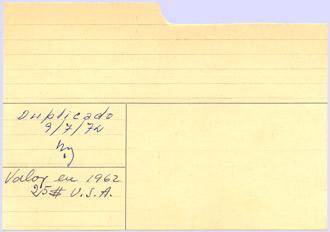 Duplicado
9/7/72
Valor en 1962
25# U.S.A.